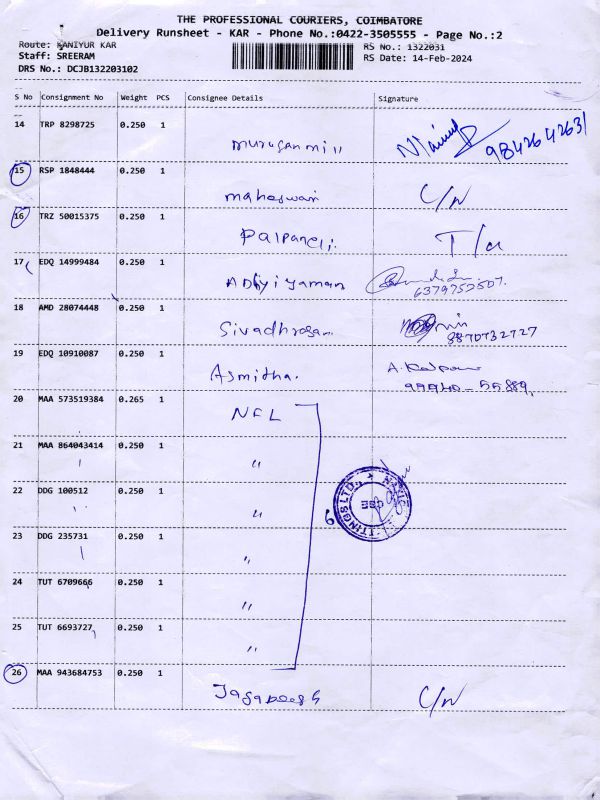 THE PROFESSIONAL COURIERS, COIMBATORE
Delivery Runsheet - KAR - Phone No.:0422-3505555 - Page No.:2
Route: KANIYUR KAR RS No.: 1322031
Staff: SREERAM RS Date: 14-Feb-2024
DRS No.: DCJB132203102
S No Consignment No Weight PCS Consignee Details Signature
14 TRP 8298725 0.250 1 9842642631
15 RSP 1848444 0.250 1 maheswari C/N
16 TRZ 50015375 0.250 1
17 EDQ 14999484 0.250 1 6379752507.
18 AMD 28074448 0.250 1 8870732727
19 EDQ 10910087 0.250 1 Asmitha. 99940-55889
20 MAA 573519384 0.265 1 NFL
21 MAA 864043414 0.250 1 "
22 DDG 100512 0.250 1 " 6
23 DDG 235731 0.250 1 "
24 TUT 6709666 0.250 1 "
25 TUT 6693727 0.250 1 "
26 MAA 943684753 0.250 1 C/N